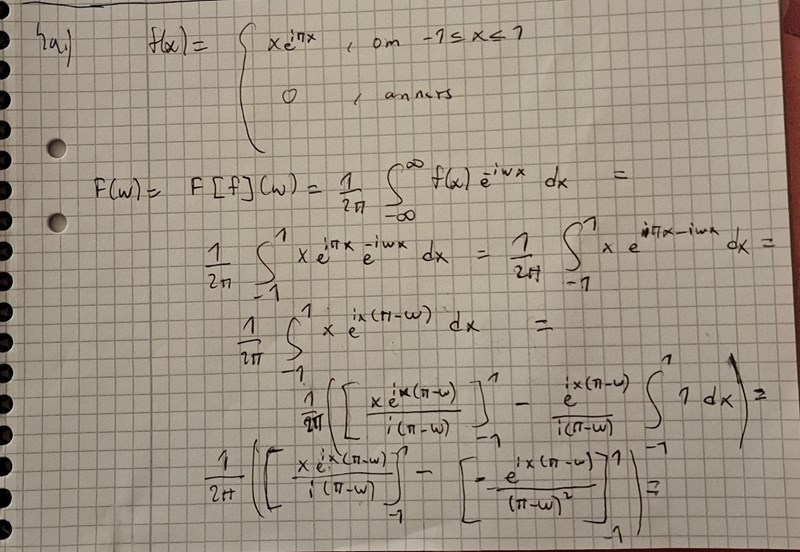 5a.) f(x) = { x e^{iπx} , om -1 ≤ x ≤ 1
0 , annars
F(w) = F[f](w) = \frac{1}{2π} ∫_{-∞}^{∞} f(x) e^{-iwx} dx =
\frac{1}{2π} ∫_{-1}^{1} x e^{iπx} e^{-iwx} dx = \frac{1}{2π} ∫_{-1}^{1} x e^{iπx-iwx} dx =
\frac{1}{2π} ∫_{-1}^{1} x e^{ix(π-w)} dx =
\frac{1}{2π} ( [ \frac{x e^{ix(π-w)}}{i(π-w)} ]_{-1}^{1} - \frac{e^{ix(π-w)}}{i(π-w)} ∫_{-1}^{1} 1 dx ) =
\frac{1}{2π} ( [ \frac{x e^{ix(π-w)}}{i(π-w)} ]_{-1}^{1} - [ - \frac{e^{ix(π-w)}}{(π-w)^2} ]_{-1}^{1} ) =